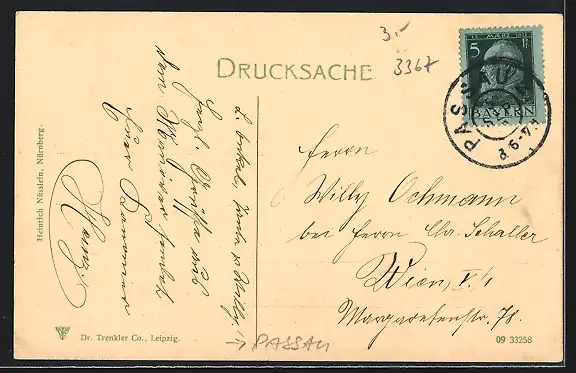 DRUCKSACHE
3.-
3367
12. MÄRZ 1911
5 Pf
BAYERN
PASSAU
6-7
L. Onkel, Tante u. Willy!
Herzl. Grüße aus
dem
Euer
Heinz.
Herrn
Willy Ochmann
bei Herrn Chr. Schaller
Wien, V/1
Margaretenstr. 78.
→ PASSAU
Heinrich Nüsslein, Nürnberg.
Dr. Trenkler Co., Leipzig.
09 33258